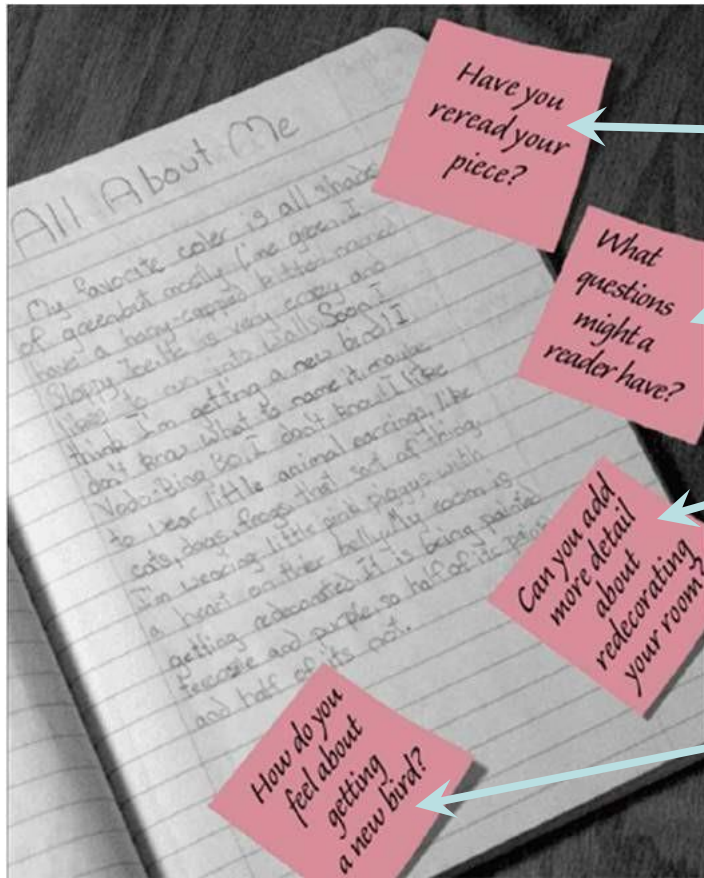 All About Me
My favorite color is all shades
of green but mostly lime green. I
have a bary-capped
Sloppy Joe. He is very crazy and
likes to run into walls. Soon I
think I'm getting a new bird! I
don't know what to name it, maybe
I don't know! I like
to wear little animal earrings, like
cats, dogs, frogs that sort of thing.
I'm wearing little pink piggys with
a heart on their belly. My room is
getting redecorated. It is being painted
and purple, so half of its
and half of its not.
Have you
reread your
piece?
What
questions
might a
reader have?
Can you add
more detail
about
redecorating
your room?
How do you
feel about
getting
a new bird?